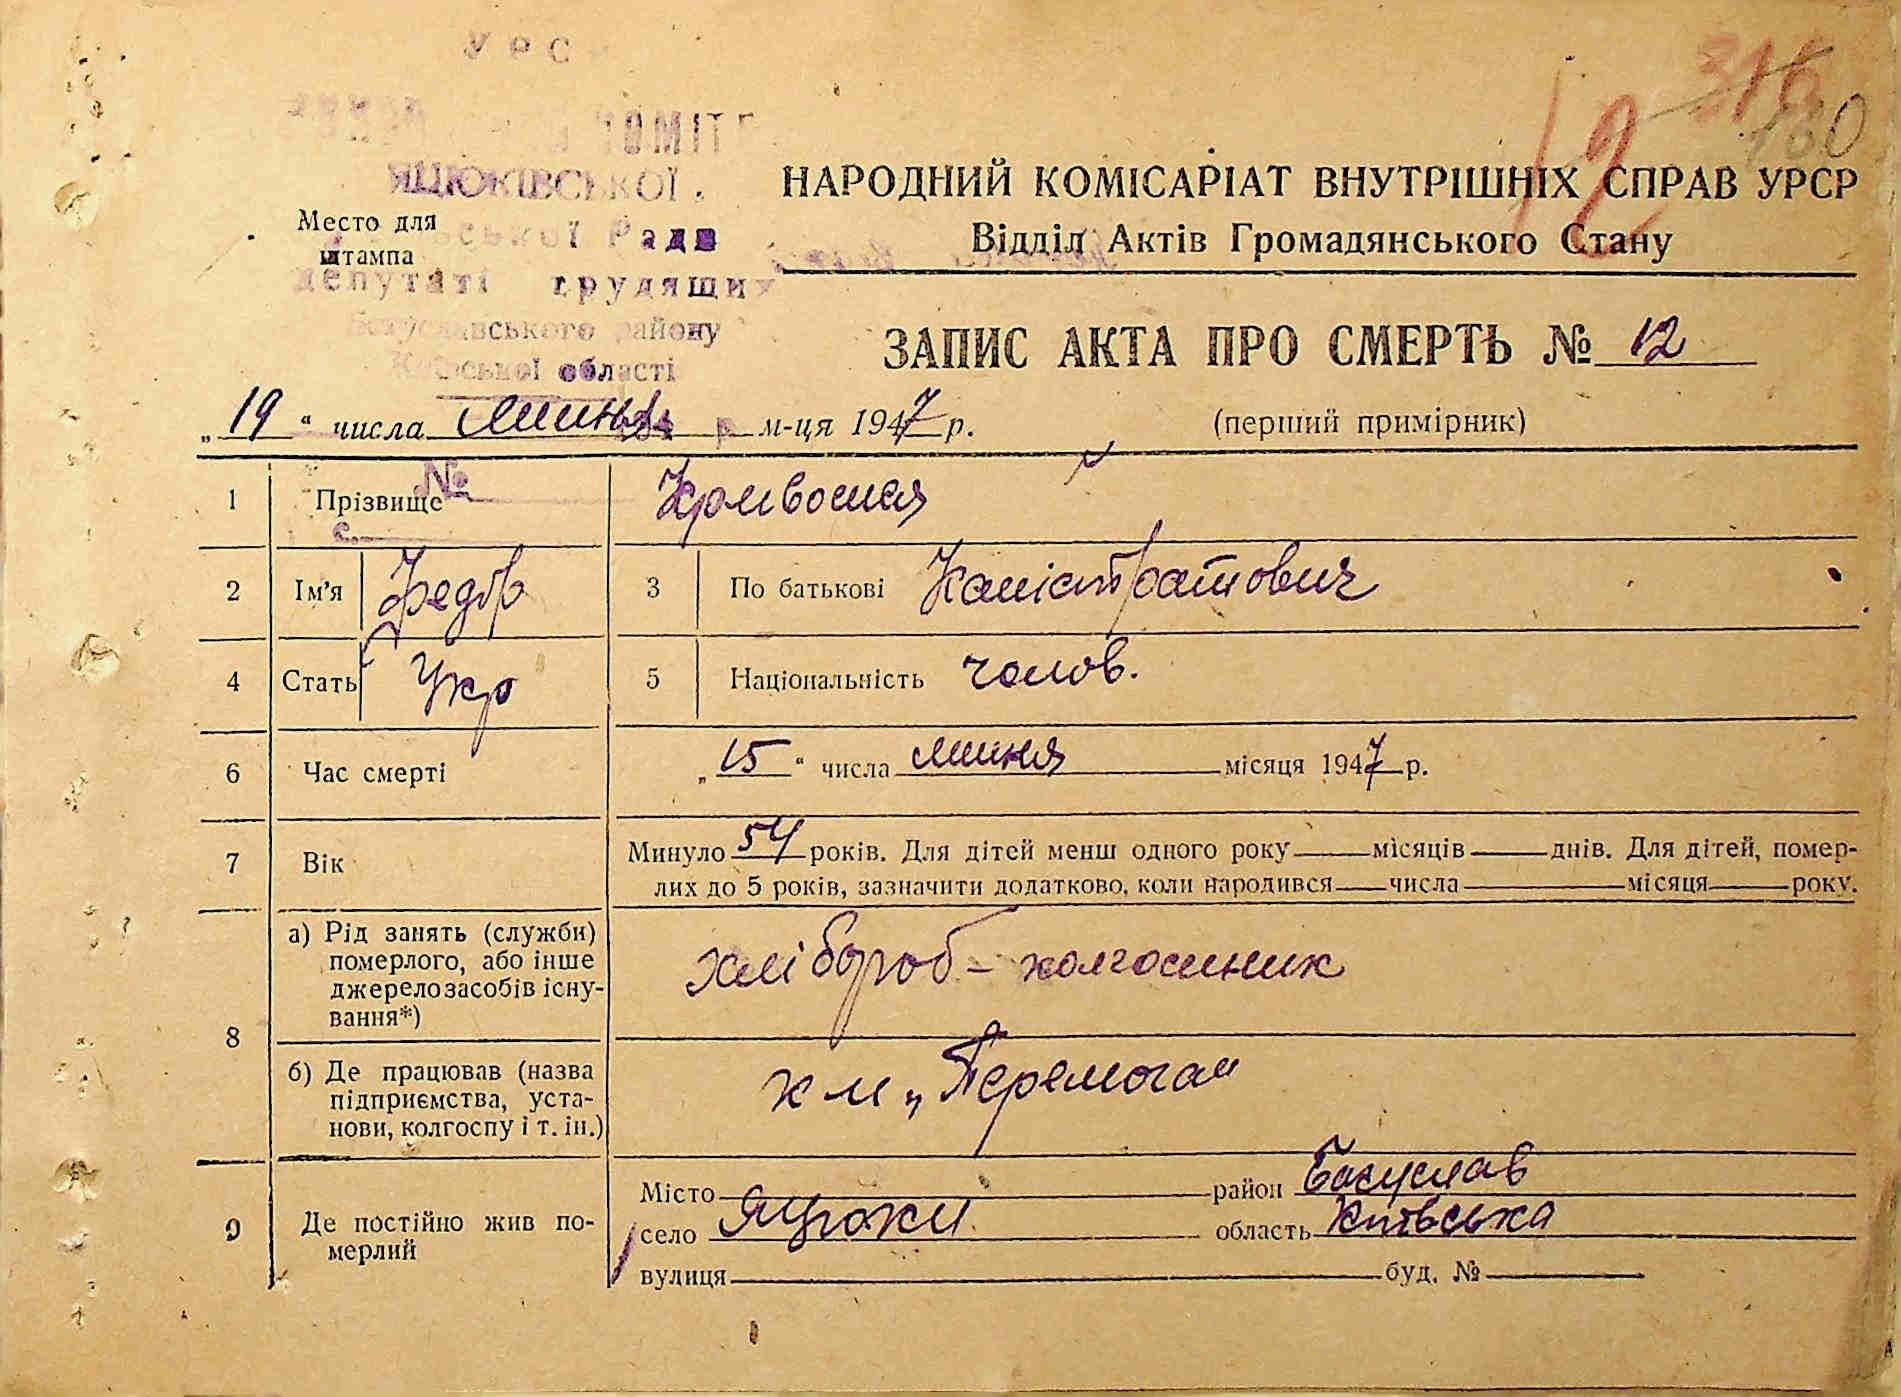 УРС
316
180
12
КОМІТ
ЯЦЮКІВСЬКОЇ
Место для
штампа
ської Ради
депутаті трудящих
Богуславського району
Київської області
НАРОДНИЙ КОМІСАРІАТ ВНУТРІШНІХ СПРАВ УРСР
Відділ Актів Громадянського Стану
ЗАПИС АКТА ПРО СМЕРТЬ № 12
„19" числа Липня м-ця 1947 р. (перший примірник)
№
с.
1 Прізвище Кривошея
2 Ім'я Федір 3 По батькові Калістратович
4 Стать Укр 5 Національність чолов.
6 Час смерті „15" числа липня місяця 1947 р.
7 Вік Минуло 54 років. Для дітей менш одного року місяців днів. Для дітей, помер-
лих до 5 років, зазначити додатково, коли народився числа місяця року.
8 а) Рід занять (служби)
померлого, або інше
джерело засобів існу-
вання*)
хлібороб – колгоспник
б) Де працював (назва
підприємства, уста-
нови, колгоспу і т. ін.)
к м „Перемога"
9 Де постійно жив по-
мерлий
Місто район Богуслав
село Яцюки область Київська
вулиця буд. №